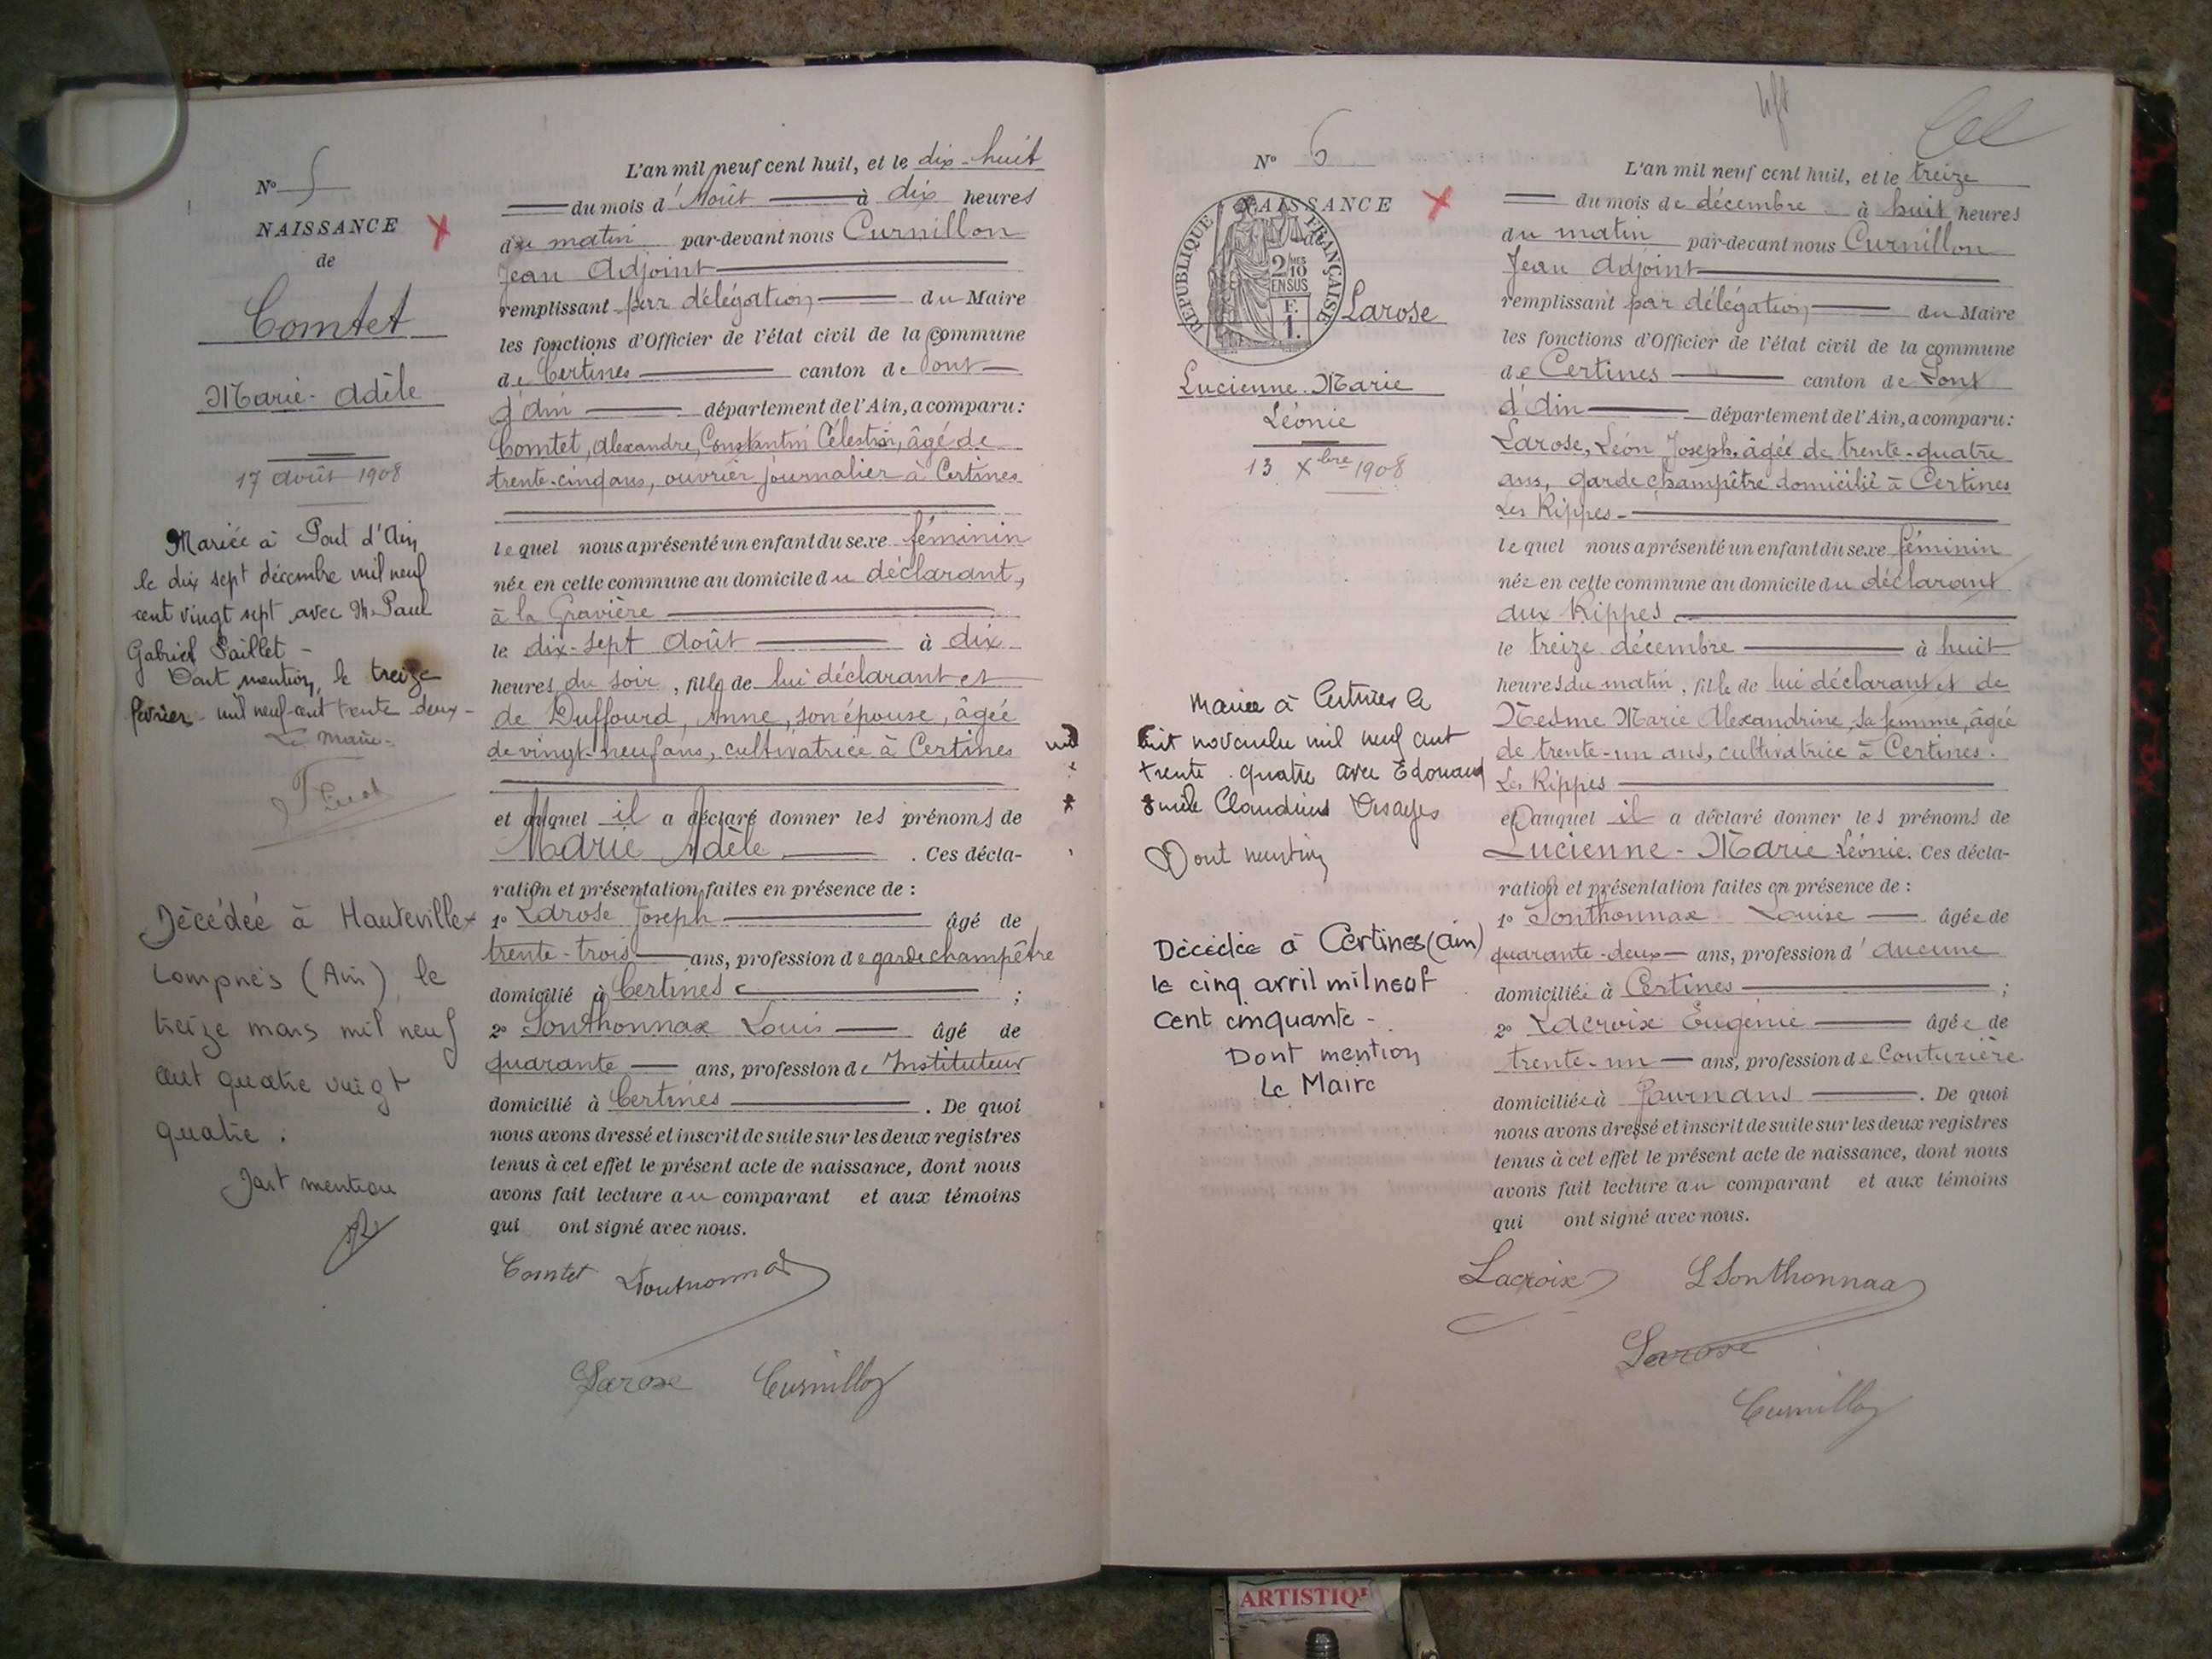 N° 5
NAISSANCE
de
Comtet
Marie-Adèle
17 août 1908
Mariée à Pont d'Ain
le dix sept décembre mil neuf
cent vingt sept avec M. Paul
Gabriel Paillet -
Dont mention, le treize
février mil neuf cent trente deux -
Le Maire
Décédée à Hauteville-
Lompnes (Ain) le
treize mars mil neuf
cent quatre vingt
quatre.
Dont mention
L'an mil neuf cent huit, et le dix-huit
du mois d'Août à dix heures
du matin par-devant nous Curnillon
Jean Adjoint
remplissant par délégation du Maire
les fonctions d'Officier de l'état civil de la commune
de Certines canton de Pont
d'Ain département de l'Ain, a comparu :
Comtet, Alexandre, Constantin Célestin, âgé de
trente-cinq ans, ouvrier journalier à Certines
lequel nous a présenté un enfant du sexe féminin
née en cette commune au domicile du déclarant,
à la Gravière
le dix-sept Août à dix
heures du soir, fille de lui déclarant et
de Duffourd, Anne, son épouse, âgée
de vingt-neuf ans, cultivatrice à Certines
et auquel il a déclaré donner les prénoms de
Marie Adèle. Ces décla-
ration et présentation faites en présence de :
1° Larose Joseph âgé de
trente-trois ans, profession de garde champêtre
domicilié à Certines ;
2° Sonthonnax Louis âgé de
quarante ans, profession de Instituteur
domicilié à Certines. De quoi
nous avons dressé et inscrit de suite sur les deux registres
tenus à cet effet le présent acte de naissance, dont nous
avons fait lecture au comparant et aux témoins
qui ont signé avec nous.
Comtet LSonthonnax
Larose Curnillon
N° 6
NAISSANCE
de
RÉPUBLIQUE FRANÇAISE
2/10 MES
EN SUS
F.
1.
Larose
Lucienne-Marie
Léonie
13 Xbre 1908
Mariée à Certines le
huit novembre mil neuf cent
trente quatre avec Edouard
Emile Claudius
Dont mention
Décédée à Certines (Ain)
le cinq avril mil neuf
cent cinquante -
Dont mention
Le Maire
L'an mil neuf cent huit, et le treize
du mois de décembre à huit heures
du matin par-devant nous Curnillon
Jean Adjoint
remplissant par délégation du Maire
les fonctions d'Officier de l'état civil de la commune
de Certines canton de Pont
d'Ain département de l'Ain, a comparu :
Larose, Léon Joseph, âgée de trente-quatre
ans, garde champêtre domicilié à Certines
Les Rippes -
lequel nous a présenté un enfant du sexe féminin
née en cette commune au domicile du déclarant
aux Rippes
le treize décembre à huit
heures du matin, fille de lui déclarant et de
Nesme Marie Alexandrine, sa femme, âgée
de trente-un ans, cultivatrice à Certines.
Les Rippes
et auquel il a déclaré donner les prénoms de
Lucienne-Marie Léonie. Ces décla-
ration et présentation faites en présence de :
1° Sonthonnax Louise âgée de
quarante-deux ans, profession d'aucune
domiciliée à Certines ;
2° Lacroix Eugénie âgée de
trente-un ans, profession de Couturière
domiciliée à Journans. De quoi
nous avons dressé et inscrit de suite sur les deux registres
tenus à cet effet le présent acte de naissance, dont nous
avons fait lecture au comparant et aux témoins
qui ont signé avec nous.
Lacroix L Sonthonnax
Larose
Curnillon
ARTISTIQ